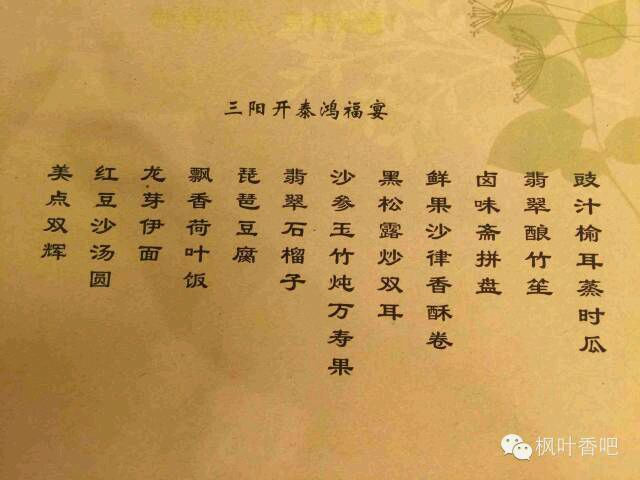 三阳开泰鸿福宴
豉汁榆耳蒸时瓜
翡翠酿竹笙
卤味斋拼盘
鲜果沙律香酥卷
黑松露炒双耳
沙参玉竹炖万寿果
翡翠石榴子
琵琶豆腐
飘香荷叶饭
龙芽伊面
红豆沙汤圆
美点双辉
枫叶香吧